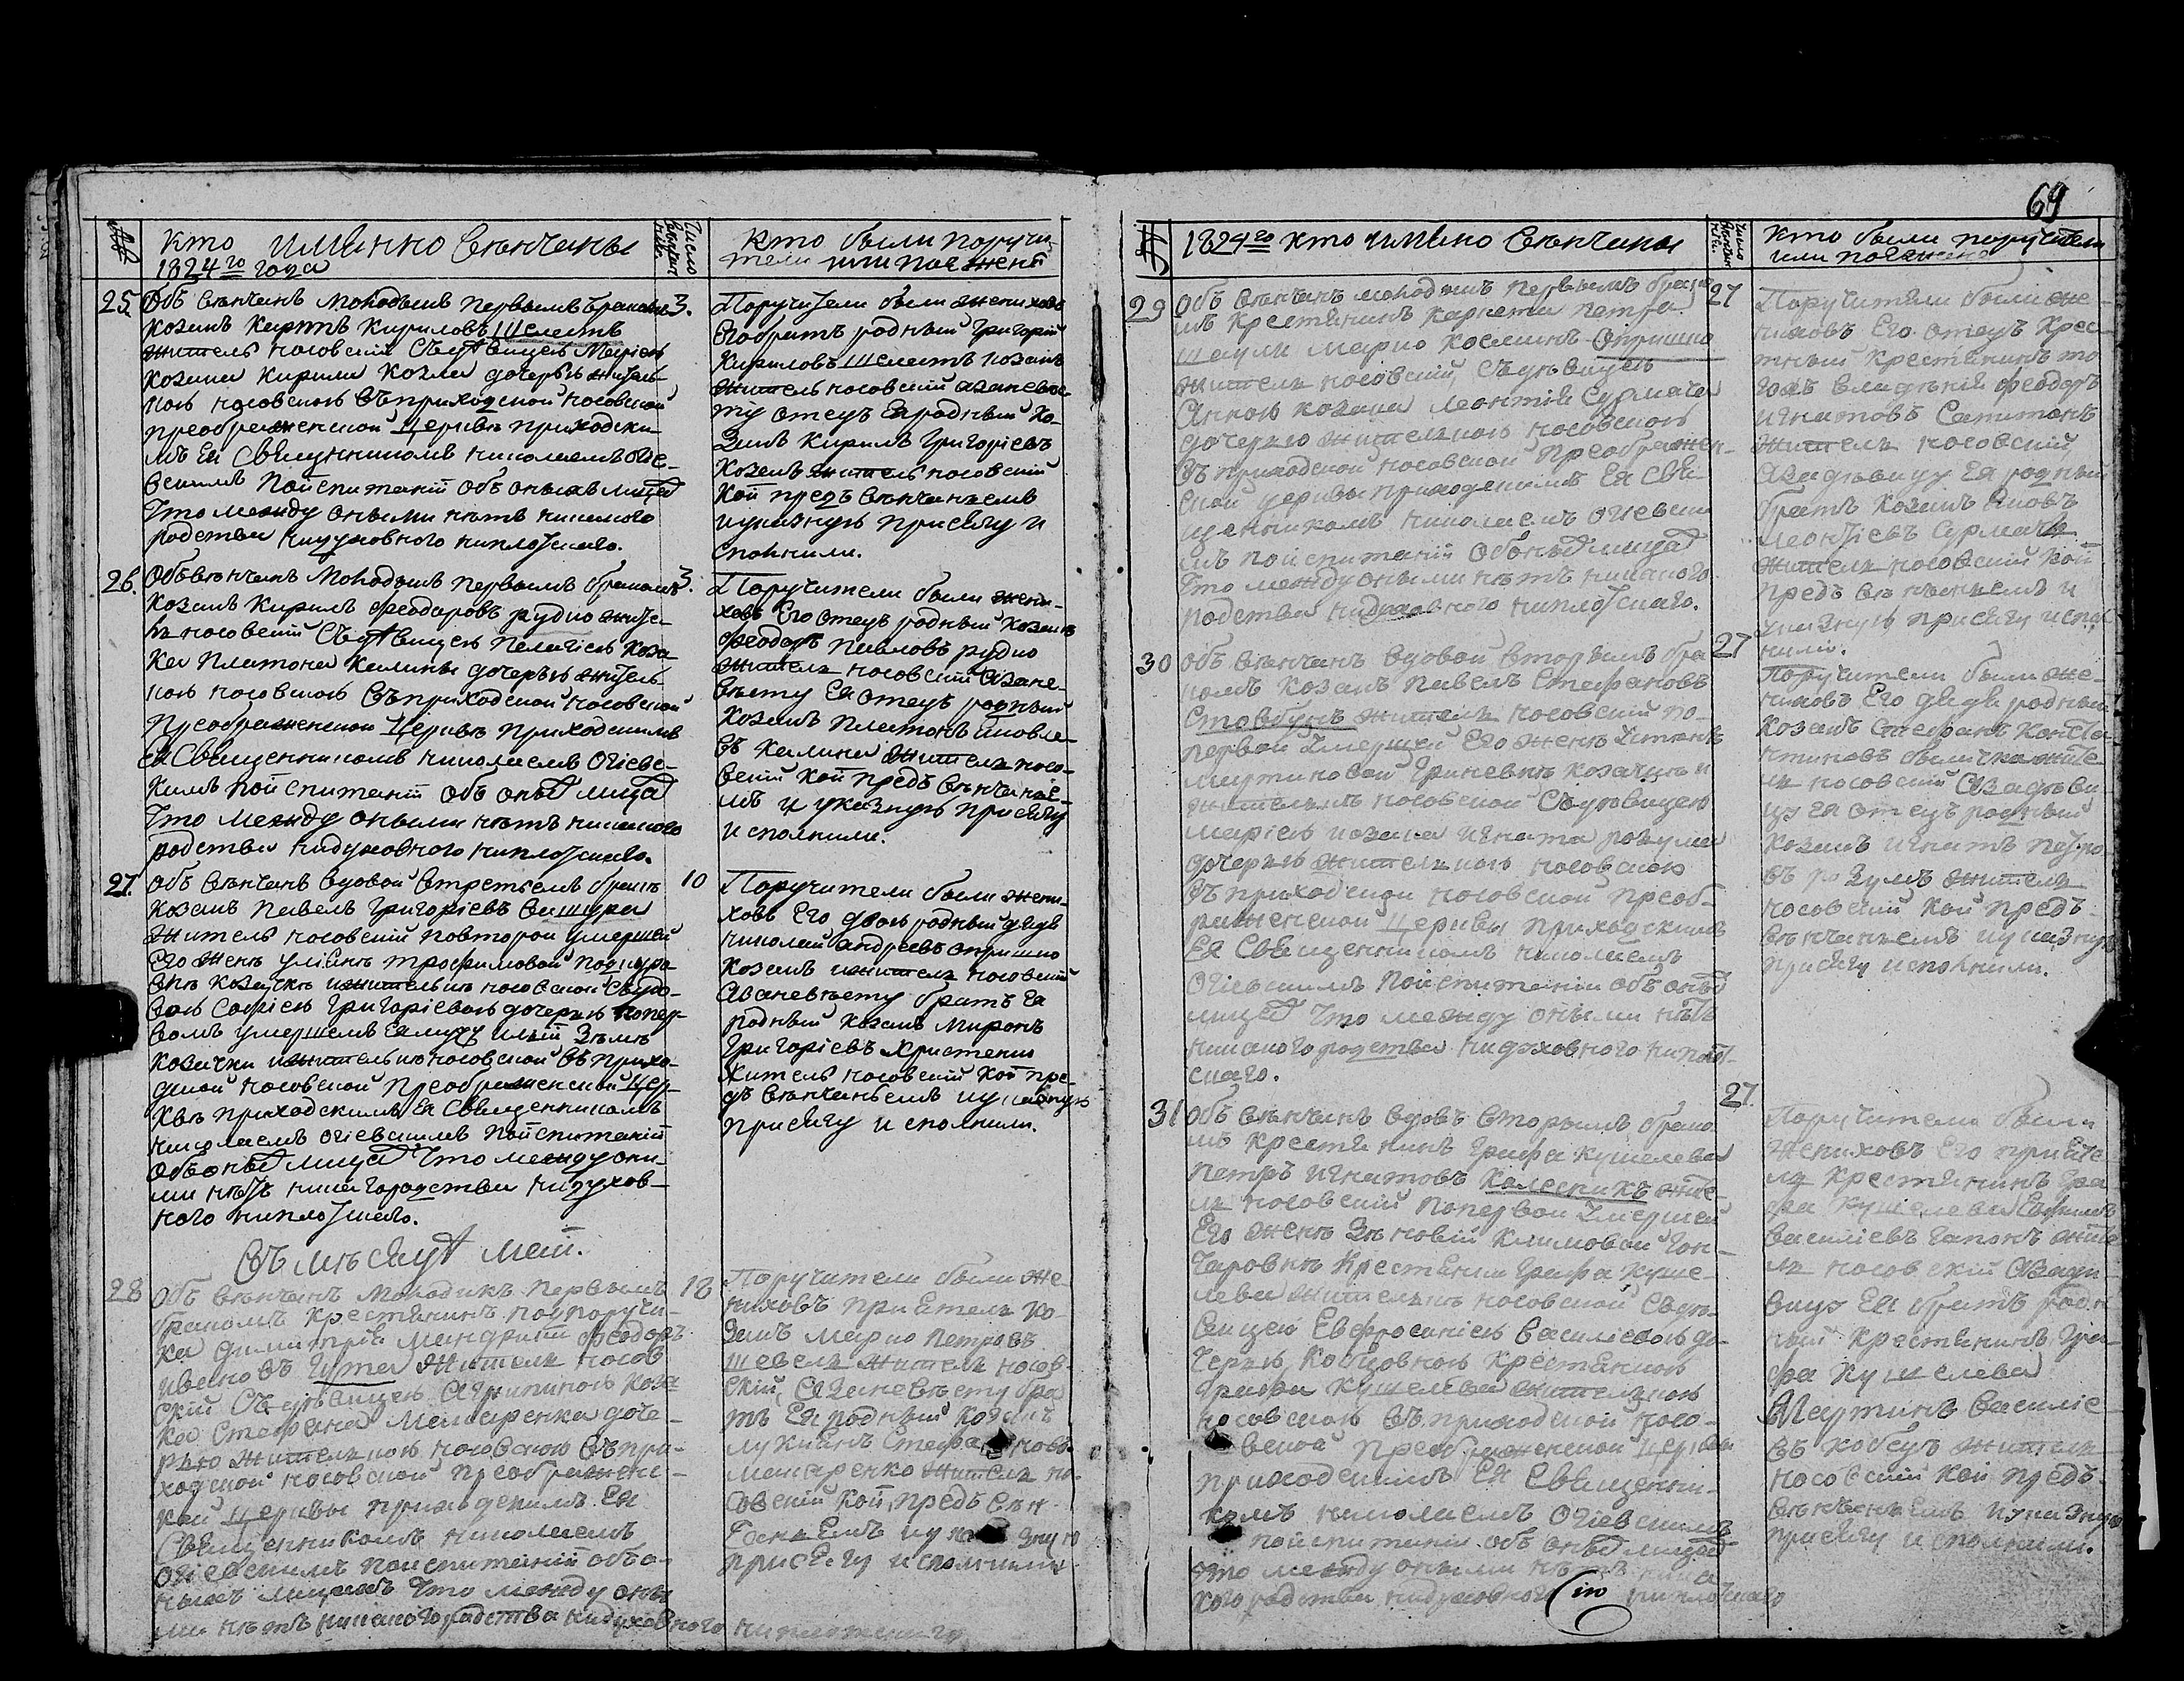 69
№
Кто имянно венчаны
1824го года
Число
Кто были поручи-
тели или поезжане
25.
Объ венчанъ молодымъ первымъ бракомъ
козакъ Кирилловъ Шелестъ
жытель носовский съ девицею Мариею
козака Кирила Козла дочерью жытель-
ною носовскою въ приходской носовской
преображенской церкве приходски-
мъ ея священникомъ Николаемъ Огие-
вскимъ по испитаніи объ оныхъ лицахъ
что между оными нетъ никакого
родства ни духовного ни плотскаго.
3.
Поручители были жениховъ
его братъ родный Григорий
Кириловъ Шелестъ козакъ
жытель носовский а за неве-
сту отецъ ея родный ко-
закъ Кирилъ Григориевъ
Козелъ жытель носовский
кои предъ венчаниемъ
и указную присягу и
сполнили.
26.
Объ венчанъ молодымъ первымъ бракомъ
козакъ Кирилъ Феодоровъ Рудко жите-
ль носовский съ девицею Пелагиею коза-
ка Платона Калины дочерью жытель-
ною носовскою въ приходской носовской
преображенской церкве приходскимъ
ея священникомъ Николаемъ Огиевс-
кимъ по испитаніи объ оныхъ лицахъ
что между оными нетъ никакого
родства ни духовного ни плотскаго.
3.
Поручители были жени-
ховъ его отецъ родный козакъ
Феодоръ Павловъ Рудко
жытель носовский а за не-
весту ея отецъ родный
козакъ Платонъ
въ Калина жытель носо-
вский кои предъ венчание-
мъ и указную присягу
исполнили.
27.
Объ венчанъ вдовой третьемъ браке
козакъ Павелъ Григориевъ Вашура
жытель носовский по второй умершей
его жене Трофимовой
козачке и жытельке носовской съ вдо-
вою Софиею Григориевою дочерью по пер-
вомъ умершемъ ея мужу
козачки и жытельки носовской въ прихо-
дской носовской преображенской цер-
кве приходскимъ ея священникомъ
Николаемъ Огиевскимъ по испитаніи
объ оныхъ лицахъ что между оны-
ми нетъ никакого родства ни духов-
ного ни плотскаго.
10
Поручители были жени-
ховъ его двоюродный дядя
Николай Андреевъ Опришко
козакъ и жытель носовский
а за невесту братъ ея
родный козакъ Миронъ
Григориевъ Христенко
жытель носовский кои пре-
дъ венчаниемъ и указную
присягу исполнили.
Въ месяце маи.
28
Объ венчанъ молодикъ первымъ
бракомъ крестянинъ подпоручи-
ка Димитрия Феодоръ
Ивановъ Гута жытель носов-
ский съ девицею Агрипиною коза-
ка Стефана Макаренка доче-
рью жытельною носовскою въ при-
ходской носовской преображенс-
кой церквы приходскимъ ея
священникомъ Николаемъ
Огиевскимъ по испитаніи объ о-
ныхъ лицахъ что между оны-
ми нетъ никакого родства ни духовного ни плотскаго
18
Поручители были же-
ниховъ приятель ко-
закъ Марко Петровъ
Шевель жытель носов-
ский, а за невесту бра-
тъ ея родный козакъ
Лукиянъ Стефановъ
Макаренко жытель но-
совский кои предъ вен-
чаниемъ и указную
присягу исполнили
№
1824го Кто имяно венчаны
Число
Кто были поручители
или поезжане
29
Объ венчанъ молодымъ первымъ брако-
мъ крестянинъ корнета Петра
Марко Косминъ Опришко
жытель носовский, съ девицею
Анною козака Леонтия Сурмача
дочерью жытельною носовскою
въ приходской носовской преображен-
ской церквы приходскимъ ея свя-
щенникомъ Николаемъ Огиевски-
мъ по испитаніи объ оныхъ лицахъ
что между оными нетъ никакого
родства ни духовного ни плотскаго.
27
Поручители были же-
ниховъ его отецъ крес-
тный крестянинъ то-
гожъ владения Феодоръ
Игнатовъ
жытель носовский
а за девицу ея родный
братъ козакъ
Леонтиевъ Сурмачъ
жытель носовский кои
предъ венчаниемъ и
указную присягу испол-
нили.
30
Объ венчанъ вдовой вторымъ бра-
комъ козакъ Павелъ Стефановъ
Стовбунъ жытель носовский по
первой умершей его жене
Мартиновой Гриневне козачке и
жытельке носовской съ девицею
Мариею козака Игната Розума
дочерью жытельною носовскою
въ приходской носовской преоб-
раженской церквы приходскимъ
ея священникомъ Николаемъ
Огиевскимъ по испитаніи объ оныхъ
лицахъ что между оными нетъ
никакого родства ни духовного ни плот-
скаго.
27
Поручители были же-
ниховъ его дядя родный
козакъ Стефанъ Конста-
нтиновъ жите-
ль носовский а за деви-
цу ея отецъ родный
козакъ Игнатъ Петро-
въ Розумъ жытель
носовский кои предъ
венчаниемъ и указную
присягу исполнили.
31
Объ венчанъ вдовъ вторымъ брако-
мъ крестянинъ графа Кушелева
Петръ Игнатовъ Колесникъ жите-
ль носовский по первой умершей
его жене Зеновии Климовой Гон-
чаровне крестянки графа Куше-
лева жытельке носовской съ де-
вицей Евфросиниею Василиевою до-
черью Кобцовною крестянкою
графа Кушелева жытельною
носовскою въ приходской носо-
вской преображенской церквы
приходскимъ ея священни-
комъ Николаемъ Огиевскимъ
по испитаніи объ оныхъ лицахъ
что между оными нетъ ника-
кого родства ни духовного ни плотскаго
27.
Поручители были
жениховъ его прияте-
ль крестянинъ гра-
фа Кушелева Ефимъ
Василиевъ Гапонъ жите-
ль носовский а за де-
вицу ея братъ род-
ный крестянинъ гра-
фа Кушелева
Мартинъ Василие-
въ Кобецъ жытель
носовский кои предъ
венчаниемъ и указную
присягу исполнили.